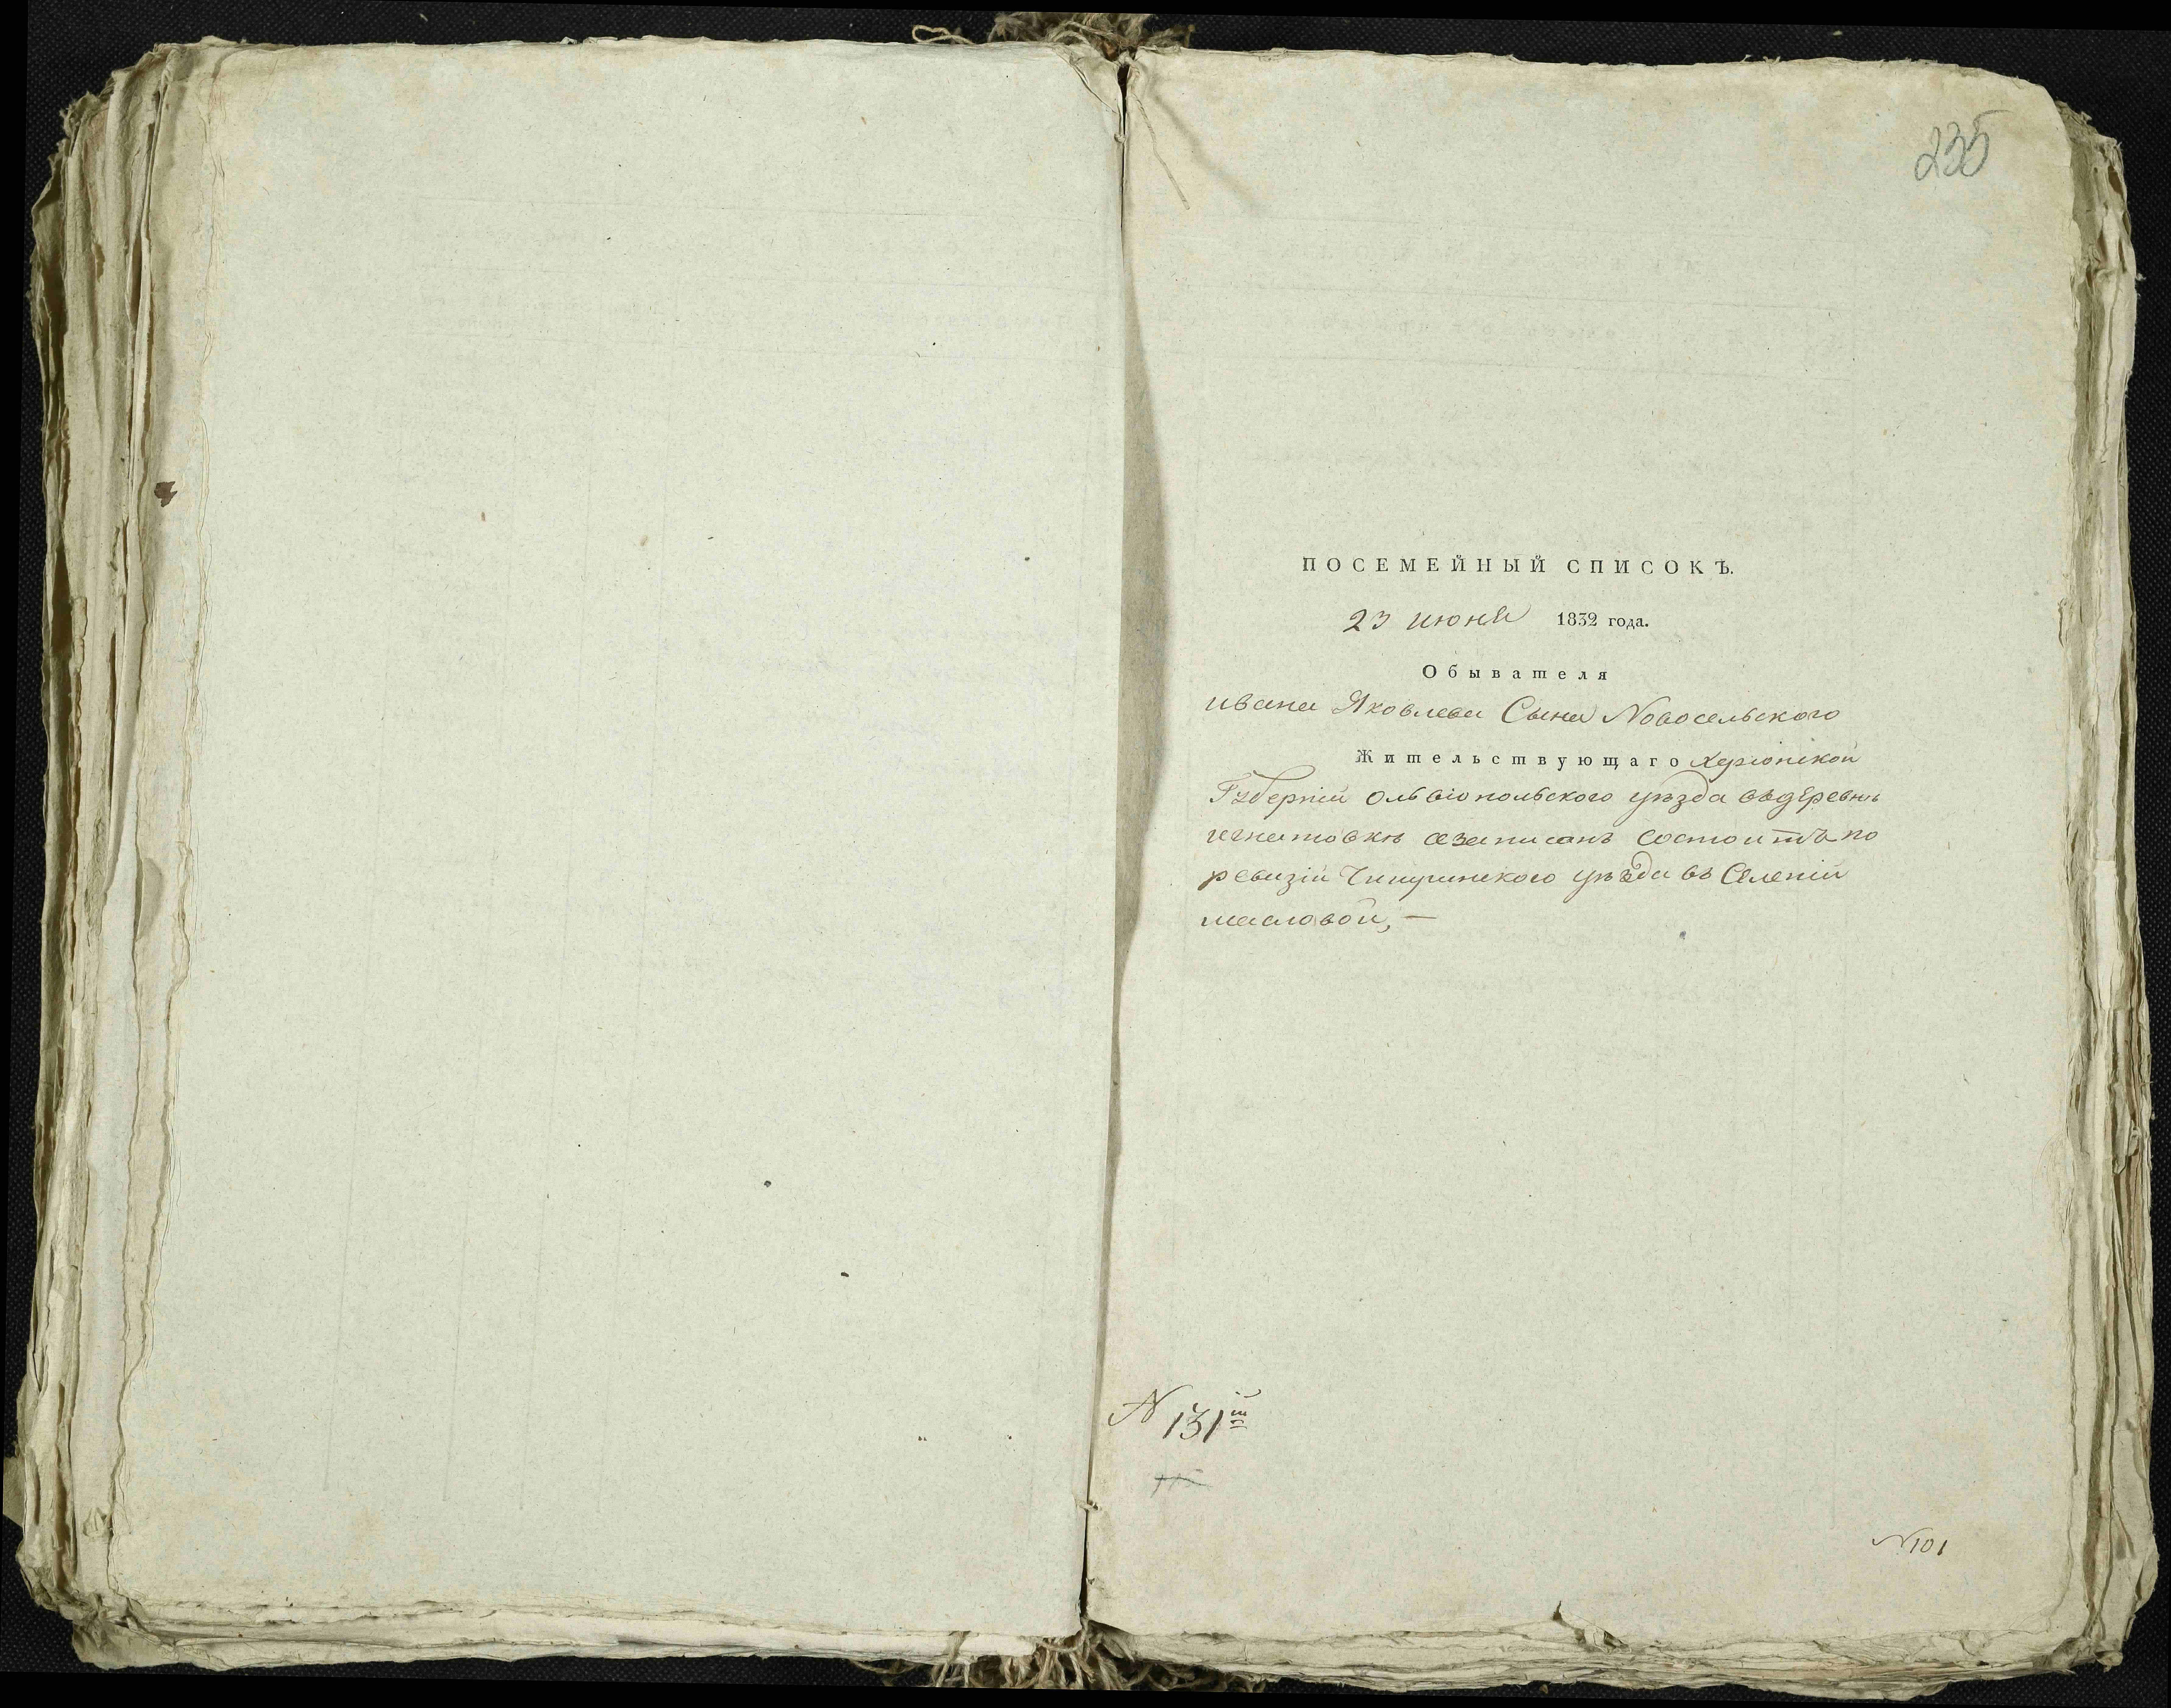 235
ПОСЕМЕЙНЫЙ СПИСОКЪ.
23 июня 1832 года.
Обывателя
ивана Яковлева Сына Новосельского
Жительствующаго Херсонской
Губерніи Ольвіопольского уѣзда въдеревнѣ
игнатовкѣ азаписанъ состоитъ по
ревизіи Чигиринского уѣзда въ Селеніи
масловой, —
N 131й
N 101